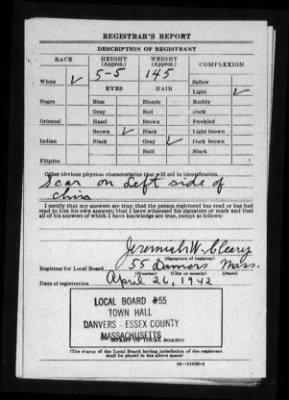 REGISTRAR'S REPORT
DESCRIPTION OF REGISTRANT
RACE HEIGHT (Approx.) WEIGHT (Approx.) COMPLEXION
5-5 145
White ✓ Sallow
EYES HAIR Light ✓
Negro Blue Blonde Ruddy
Gray Red Dark
Oriental Hazel Brown Freckled
Brown ✓ Black Light brown
Indian Black Gray ✓ Dark brown
Bald Black
Filipino
Other obvious physical characteristics that will aid in identification
Scar on Left side of
chin
I certify that my answers are true; that the person registered has read or has had
read to him his own answers; that I have witnessed his signature or mark and that
all of his answers of which I have knowledge are true, except as follows:
Jeremiah W. Cleary
(Signature of registrar)
Registrar for Local Board 55 Danvers Mass.
(Number) (City or county) (State)
Date of registration April 26, 1942
LOCAL BOARD #55
TOWN HALL
DANVERS - ESSEX COUNTY
MASSACHUSETTS
(STAMP OF LOCAL BOARD)
(The stamp of the Local Board having jurisdiction of the registrant
shall be placed in the above space)